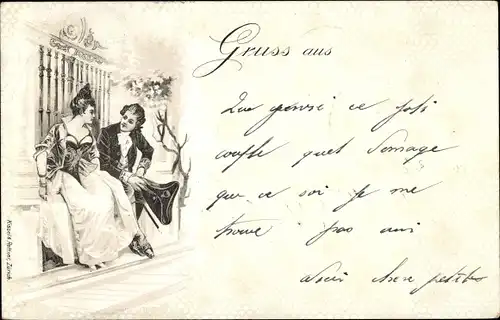 Gruss aus
Que pensi ce joli
couple quel domage
que ce soi je me
trouve pas ami
chere petite
Künzli, Zürich